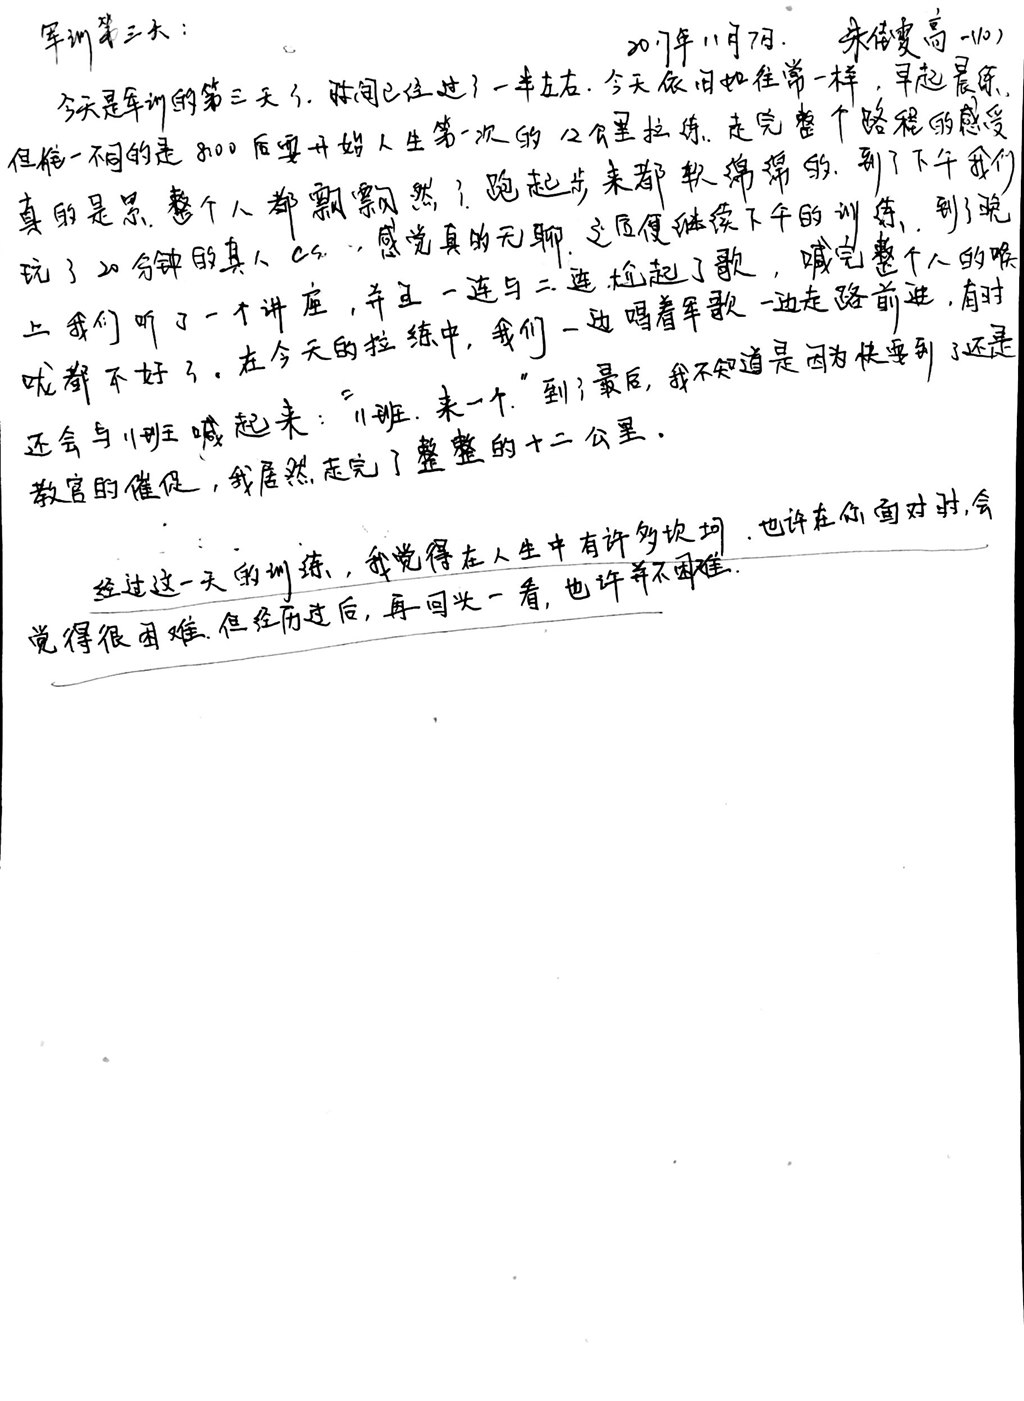 军训第三天：
2017年11月7日. 朱倩雯 高一(10)
今天是军训的第三天了.时间已经过了一半左右.今天依旧如往常一样，早起晨练、
但惟一不同的是8:00后要开始人生第一次的12公里拉练.走完整个路程的感受
真的是累.整个人都飘飘然了.跑起步来都软绵绵的.到了下午我们
玩了20分钟的真人CS...感觉真的无聊.之后便继续下午的训练.到了晚
上我们听了一个讲座，并且一连与二连尬起了歌，喊完整个人的喉
咙都不好了。在今天的拉练中，我们一边唱着军歌一边走路前进，有时
还会与11班喊起来："11班.来一个."到了最后，我不知道是因为快要到了还是
教官的催促，我居然走完了整整的十二公里.
经过这一天的训练，我觉得在人生中有许多坎坷.也许在你面对时，会
觉得很困难.但经历过后，再回头一看，也许并不困难.